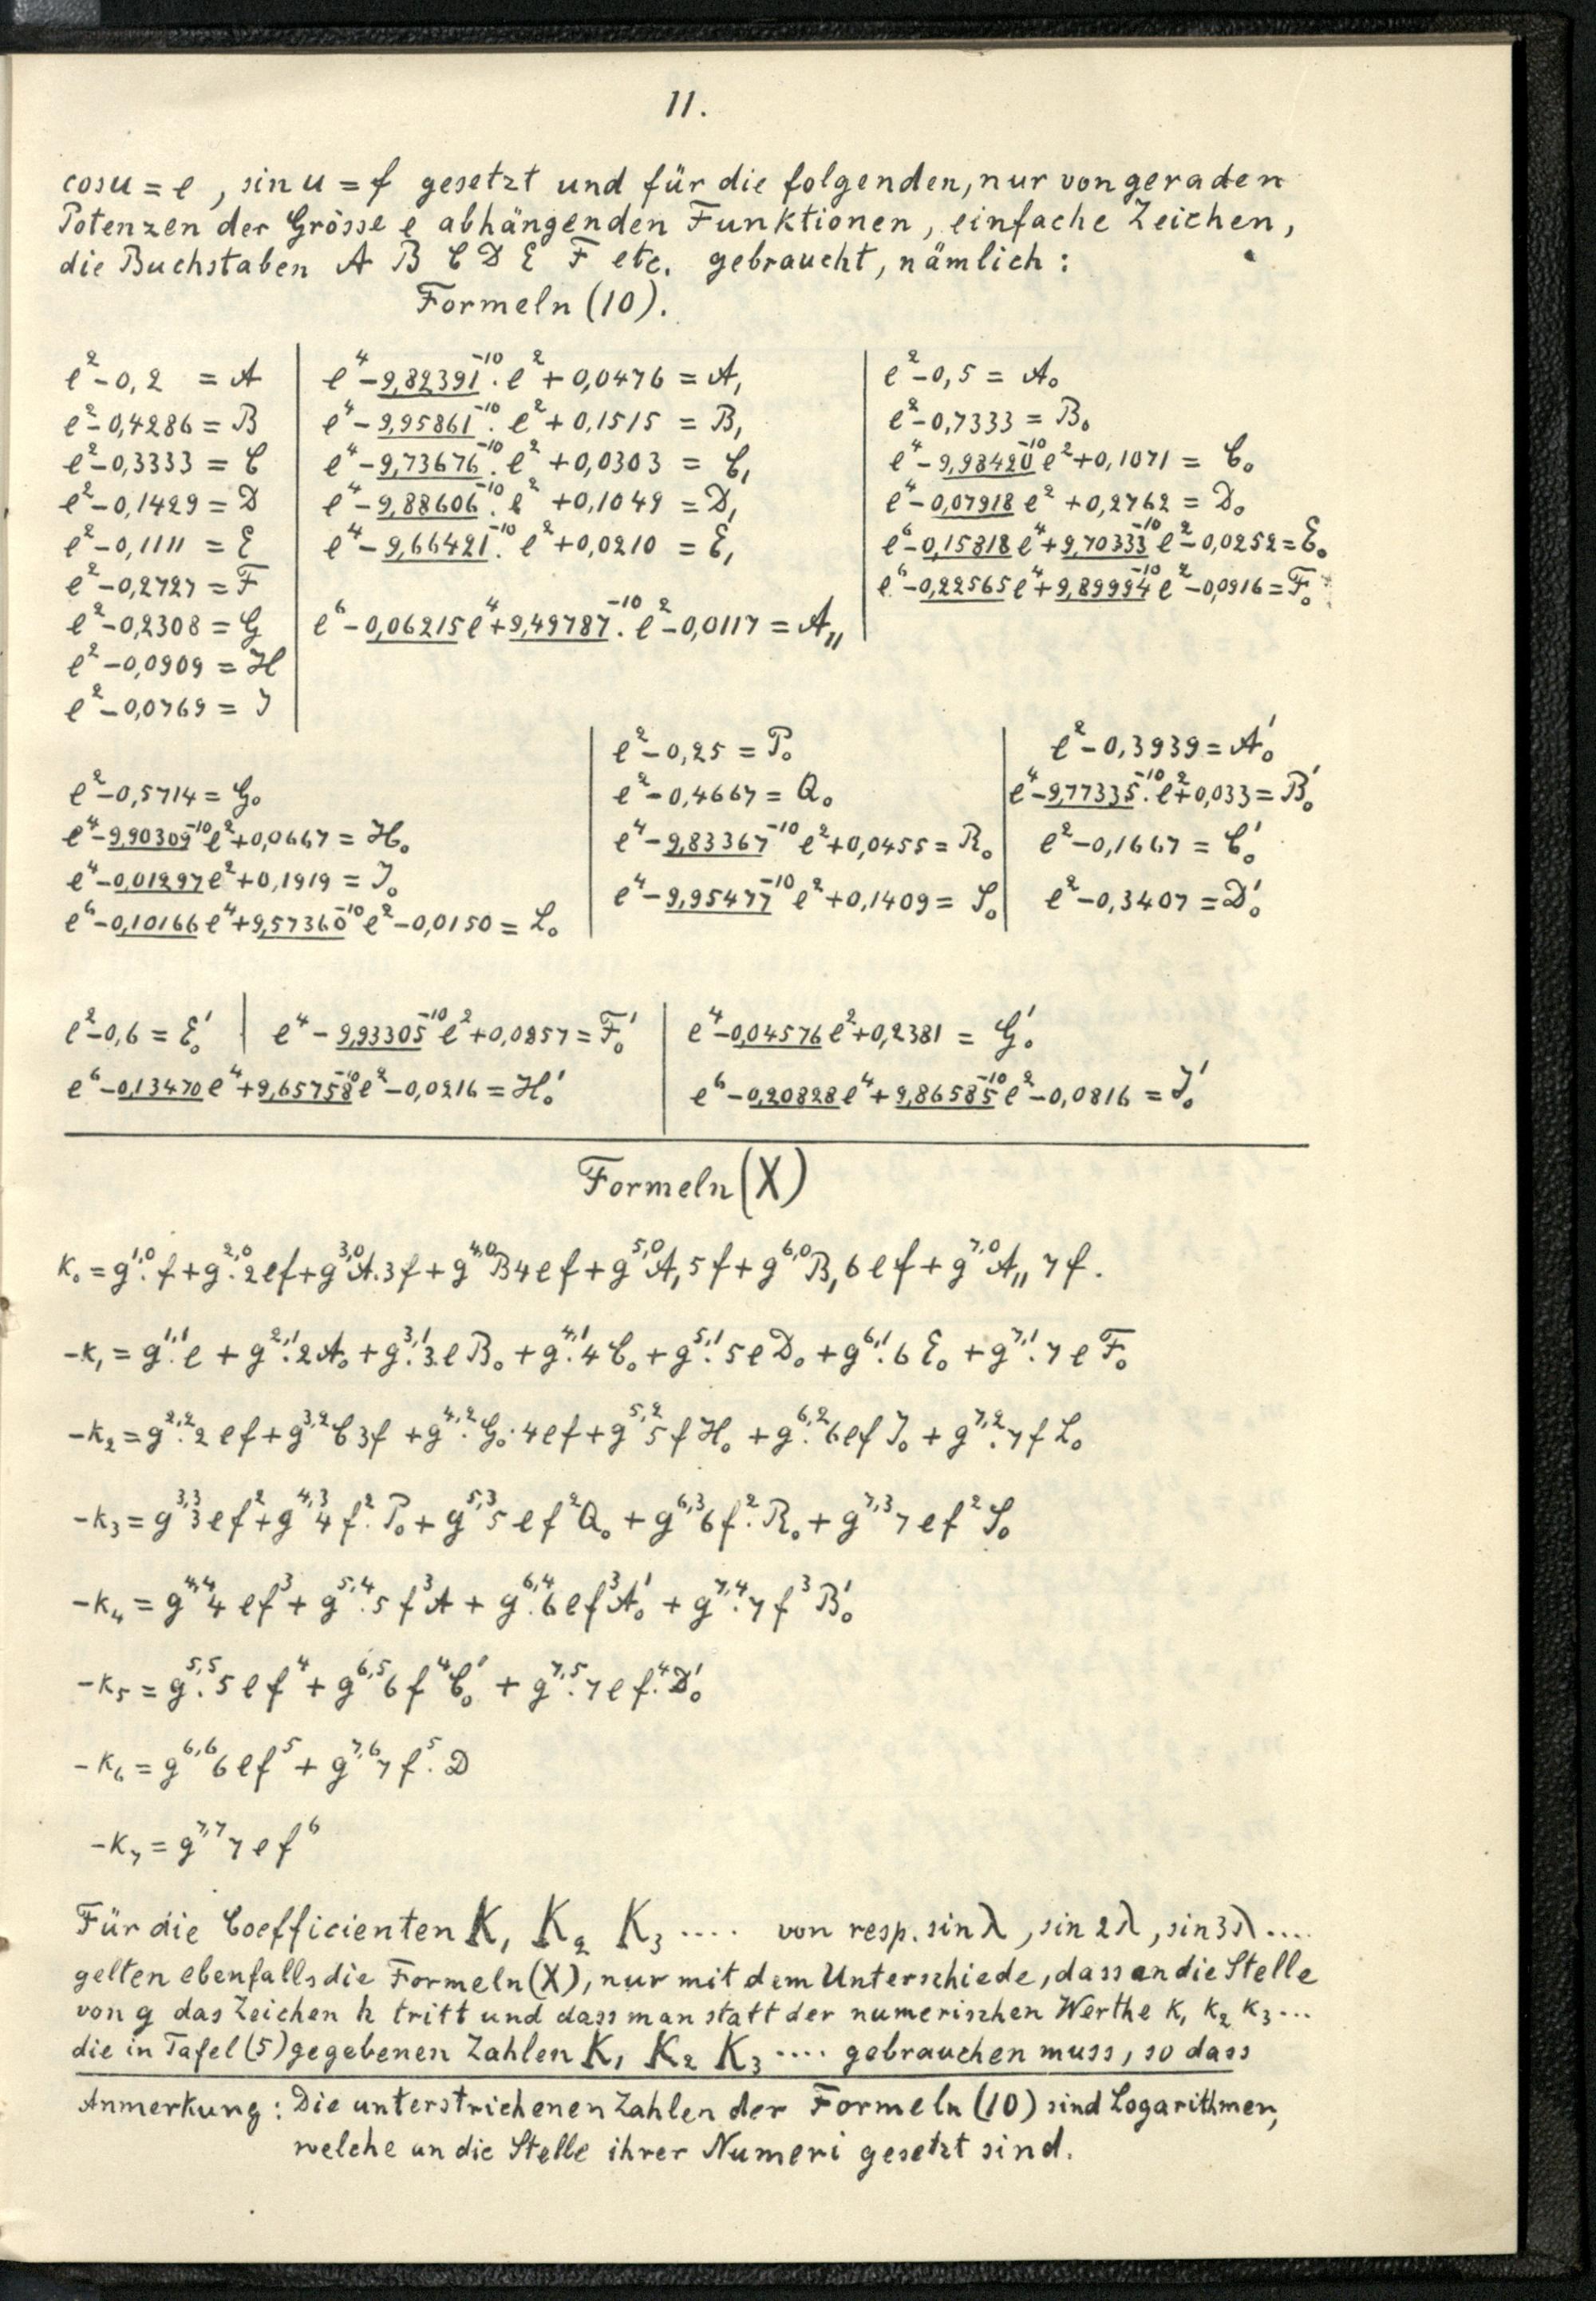 11.
cos u = e, sin u = f gesetzt und für die folgenden, nur von geraden
Potenzen der Grösse e abhängenden Funktionen, einfache Zeichen,
die Buchstaben A B C D E F etc. gebraucht, nämlich:
Formeln (10).
e² - 0,2 = A
e² - 0,4286 = B
e² - 0,3333 = C
e² - 0,1429 = D
e² - 0,1111 = E
e² - 0,2727 = F
e² - 0,2308 = G
e² - 0,0909 = H
e² - 0,0769 = J
e⁴ - 9,82391⁻¹⁰. e² + 0,0476 = A,
e⁴ - 9,95861⁻¹⁰. e² + 0,1515 = B,
e⁴ - 9,73676⁻¹⁰. e² + 0,0303 = C,
e⁴ - 9,88606⁻¹⁰. e² + 0,1049 = D,
e⁴ - 9,66421⁻¹⁰. e² + 0,0210 = E,
e⁶ - 0,06215 e⁴ + 9,49787⁻¹⁰. e² - 0,0117 = A,,
e² - 0,5 = A₀
e² - 0,7333 = B₀
e⁴ - 9,98420⁻¹⁰ e² + 0,1071 = C₀
e⁴ - 0,07918 e² + 0,2762 = D₀
e⁶ - 0,15818 e⁴ + 9,70333⁻¹⁰ e² - 0,0252 = E₀
e⁶ - 0,22565 e⁴ + 9,89994⁻¹⁰ e² - 0,0916 = F₀
e² - 0,5714 = G₀
e⁴ - 9,90309⁻¹⁰ e² + 0,0667 = H₀
e⁴ - 0,01297 e² + 0,1919 = J₀
e⁶ - 0,10166 e⁴ + 9,57360⁻¹⁰ e² - 0,0150 = L₀
e² - 0,25 = P₀
e² - 0,4667 = Q₀
e⁴ - 9,83367⁻¹⁰ e² + 0,0455 = R₀
e⁴ - 9,95477⁻¹⁰ e² + 0,1409 = S₀
e² - 0,3939 = A₀'
e⁴ - 9,77335⁻¹⁰. e² + 0,033 = B₀'
e² - 0,1667 = C₀'
e² - 0,3407 = D₀'
e² - 0,6 = E₀'
e⁴ - 9,93305⁻¹⁰ e² + 0,0857 = F₀'
e⁴ - 0,04576 e² + 0,2381 = G₀'
e⁶ - 0,13470 e⁴ + 9,65758⁻¹⁰ e² - 0,0216 = H₀'
e⁶ - 0,20828 e⁴ + 9,86585⁻¹⁰ e² - 0,0816 = J₀'
Formeln (X)
K₀ = g^1,0. f + g^2,0. 2ef + g^3,0 A. 3f + g^4,0 B 4ef + g^5,0 A, 5f + g^6,0 B, 6ef + g^7,0 A,, 7f.
-K₁ = g^1,1. e + g^2,1. 2A₀ + g^3,1. 3eB₀ + g^4,1. 4C₀ + g^5,1. 5eD₀ + g^6,1. 6E₀ + g^7,1. 7eF₀
-K₂ = g^2,2. 2ef + g^3,2 C 3f + g^4,2. G₀. 4ef + g^5,2 5fH₀ + g^6,2. 6efJ₀ + g^7,2. 7fL₀
-K₃ = g^3,3 3ef² + g^4,3 4f². P₀ + g^5,3 5ef²Q₀ + g^6,3 6f². R₀ + g^7,3 7ef²S₀
-K₄ = g^4,4 4ef³ + g^5,4. 5f³A + g^6,4. 6ef³A₀' + g^7,4. 7f³B₀'
-K₅ = g^5,5. 5ef⁴ + g^6,5 6f⁴C₀' + g^7,5. 7ef⁴. D₀'
-K₆ = g^6,6 6ef⁵ + g^7,6 7f⁵. D
-K₇ = g^7,7 7ef⁶
Für die Coefficienten K₁ K₂ K₃ .... von resp. sin λ, sin 2λ, sin 3λ ....
gelten ebenfalls die Formeln (X), nur mit dem Unterschiede, dass an die Stelle
von g das Zeichen h tritt und dass man statt der numerischen Werthe K₁ K₂ K₃ ...
die in Tafel (5) gegebenen Zahlen K₁ K₂ K₃ .... gebrauchen muss, so dass
Anmerkung: Die unterstrichenen Zahlen der Formeln (10) sind Logarithmen,
welche an die Stelle ihrer Numeri gesetzt sind.